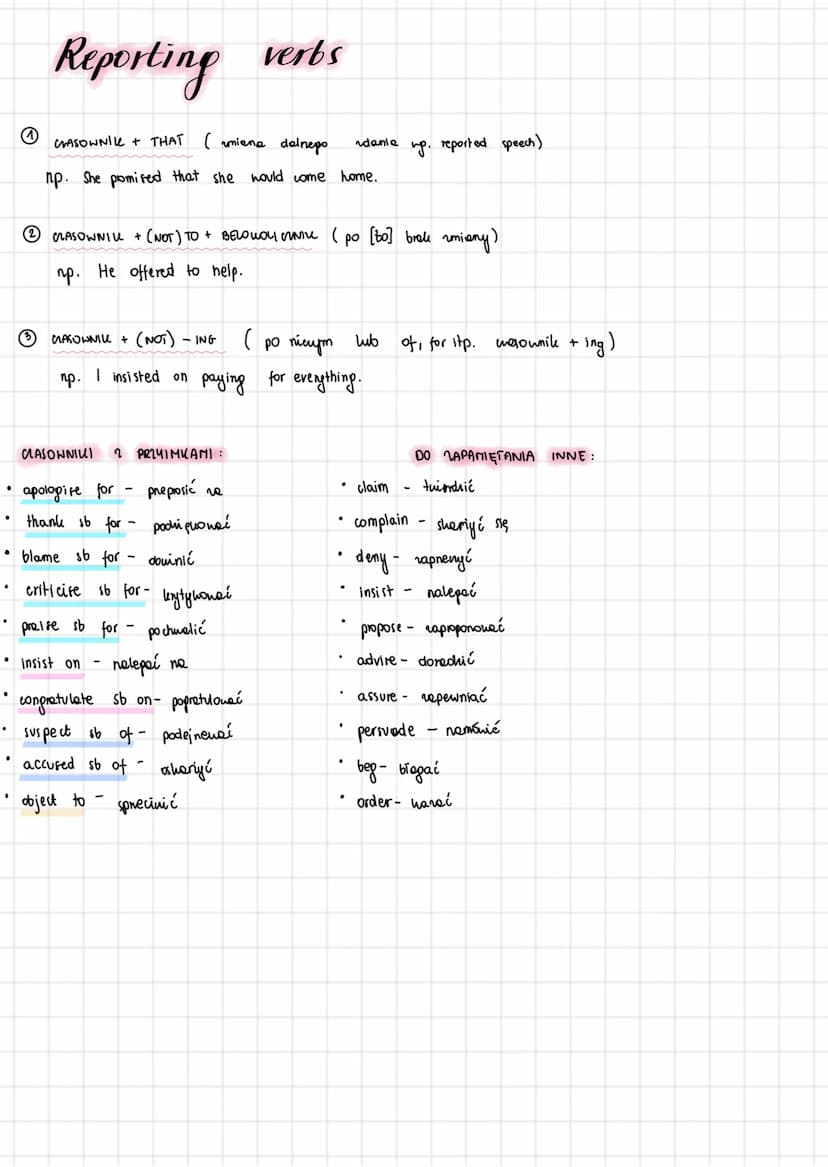 Reporting verbs
① CZASOWNIK + THAT ( zmiana dalnego zdania np. reported speech)
np. She promised that she would come home.
② CZASOWNIK + (NOT) TO + BEZOKOLICZNIK ( po [to] brak zmiany)
np. He offered to help.
③ CZASOWNIK + (NOT) - ING ( po niczym lub of, for itp. czasownik + ing)
np. I insisted on paying for everything.
CZASOWNIKI Z PRZYIMKAMI :
• apologise for - przeprosić za
• thank sb for - podziękować
• blame sb for - obwinić
• criticise sb for - krytykować
• praise sb for - pochwalić
• insist on - nalegać na
• congratulate sb on - pogratulować
• suspect sb of - podejrzewać
• accused sb of - oskarżyć
• object to - sprzeciwić
DO ZAPAMIĘTANIA INNE :
• claim - twierdzić
• complain - skarżyć się
• deny - zaprzeczyć
• insist - nalegać
• propose - zaproponować
• advise - doradzić
• assure - zapewniać
• persuade - namówić
• beg - błagać
• order - kazać